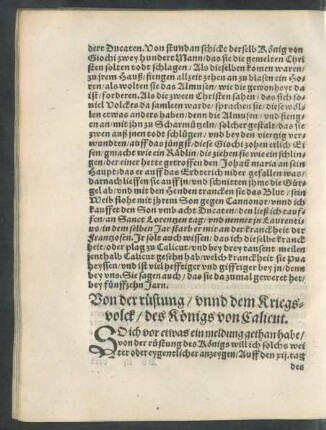 dert Ducaten. Von stund an schickt derselb König von
Giochi zwey hundert Mann / das sie die gemelten Chri
sten solten todt schlagen / Als dieselben komen waren /
zu jrem Hauß / fiengen allzeit zehen an zu blasen ein Ho-
ren / als wolten sie das Almusen / wie die gewonheyt da
ist / forderen. Als die zween Christen sahen / das sich so-
viel Volckes da samleen warde / sprachen sie / diese wöl-
len etwas anders haben / denn die Almusen / und fieng-
en an / mit jhn zu Scharmützeln / solcher gestalt / das sie
zwen auß jnen todt schlügen / und bey den viertzig ver-
wundten / auff das jüngst / diese Giochi zohen etlich Ei-
sen / gmacht wie ein Rädlin / die ziehen sie wie ein schlin-
gen / der einer hette getroffen den Johan̄ maria an sein
Haupt / das er auff das Erdterich nider gefallen was /
darnach lieffen sie auff jn / und schnitten jhm die Gür-
gel ab / und mit den Henden trancken sie das Blut / sein
Weib flohe mit jhrem Son gegen Cannonor / unnd ich
kauffet den Son vmb acht Ducaten / den ließ ich tauf-
fen / an Sanct Lorentzen tag / und nennet jn Laurenti-
us / in dem selben Jar starb er mit an der kranckheit der
Frantzosen. Jr solt auch wissen / das ich dieselb kranck
heit / oder plag zu Calicut / und bey drey tausent meilen
jenthalb Calicut gesehn hab / welch kranckheit sie Pua
heyssen / und ist viel hefftiger und gifftiger bey jn / denn
bey uns. Sie sagen auch / das sie da zumal geweret het /
bey fünffzehn Jarn.
Von der rüstung / unnd dem Kriegs-
volck / des Königs von Calicut.
SO ich vor etwas ein meldung gethan habe /
von der rüstung des Königs will ich solchs wei
ter oder eygentlicher anzeygen / Auff den xij. tag
des